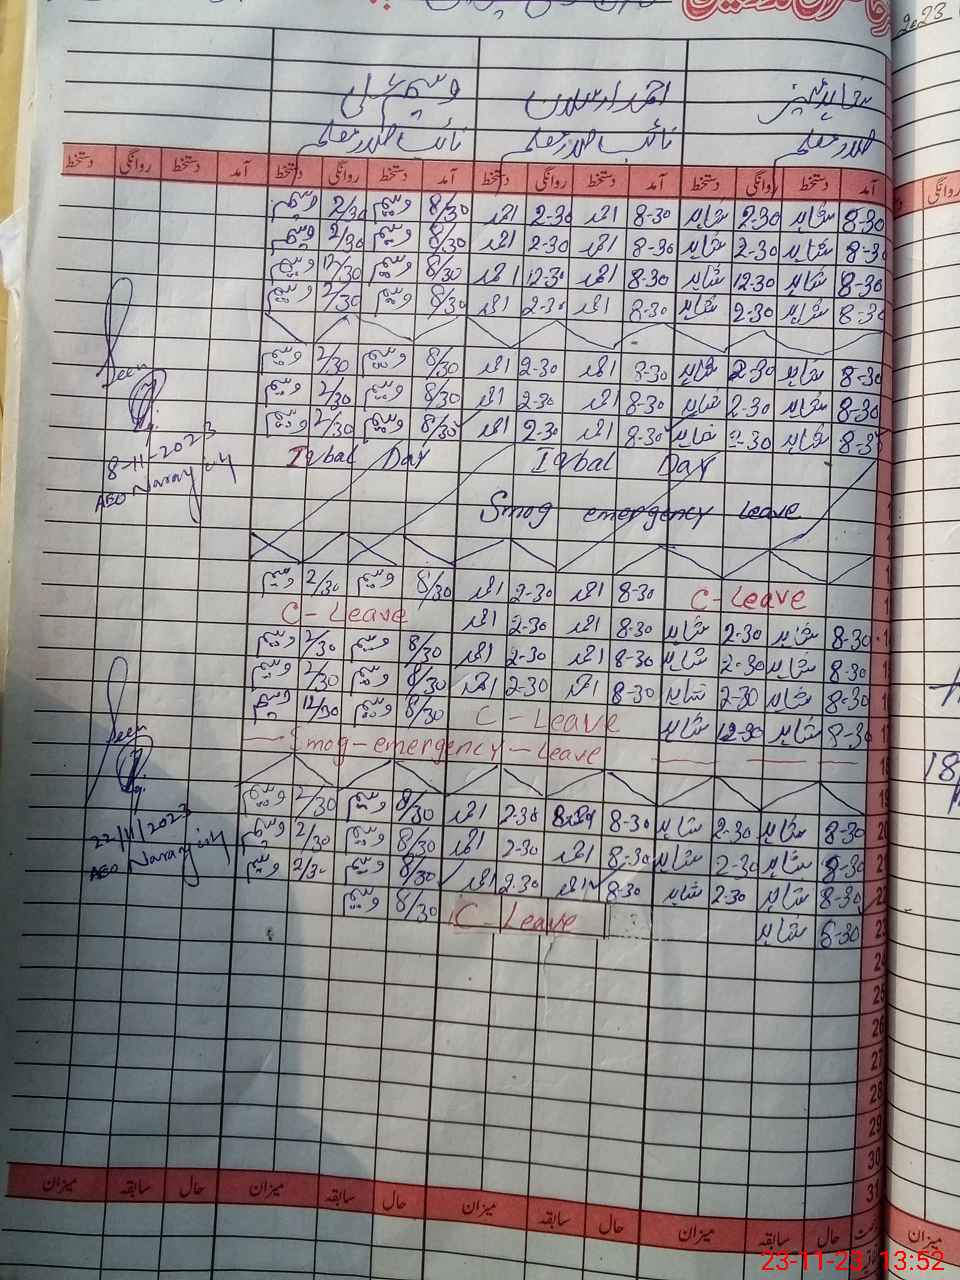 2023
شاہد پرویز
احمد ارسلان
وسیم علی
صدر معلم
نائب صدر معلم
نائب صدر معلم
آمد دستخط روانگی دستخط آمد دستخط روانگی دستخط آمد دستخط روانگی دستخط آمد دستخط روانگی دستخط
8-30 شاہد 2-30 شاہد 8-30 احمد 2-30 احمد 8/30 وسیم 2/30 وسیم
8-30 شاہد 2-30 شاہد 8-30 احمد 2-30 احمد 8/30 وسیم 2/30 وسیم
8-30 شاہد 12-30 شاہد 8-30 احمد 12-30 احمد 8/30 وسیم 12/30 وسیم
8-30 شاہد 2-30 شاہد 8-30 احمد 2-30 احمد 8/30 وسیم 2/30 وسیم
8-30 شاہد 2-30 شاہد 8-30 احمد 2-30 احمد 8/30 وسیم 2/30 وسیم
8-30 شاہد 2-30 شاہد 8-30 احمد 2-30 احمد 8/30 وسیم 2/30 وسیم
8-30 شاہد 2-30 شاہد 8-30 احمد 2-30 احمد 8/30 وسیم 2/30 وسیم
Seen
8-11-2023
AEO Narang city
Iqbal Day Iqbal Day
Smog emergency Leave
C-Leave 8-30 احمد 2-30 احمد 8/30 وسیم 2/30 وسیم
8-30 شاہد 2-30 شاہد 8-30 احمد 2-30 احمد C-Leave
8-30 شاہد 2-30 شاہد 8-30 احمد 2-30 احمد 8/30 وسیم 2/30 وسیم
8-30 شاہد 2-30 شاہد 8-30 احمد 2-30 احمد 8/30 وسیم 2/30 وسیم
8-30 شاہد 12-30 شاہد C-Leave 8/30 وسیم 12/30 وسیم
18 Smog-emergency-Leave
19
20 8-30 شاہد 2-30 شاہد 8-30 2-30 احمد 8/30 وسیم 2/30 وسیم
21 8-30 شاہد 2-30 شاہد 8-30 احمد 2-30 احمد 8/30 وسیم 2/30 وسیم
22 8-30 شاہد 2-30 شاہد 8-30 احمد 2-30 احمد 8/30 وسیم 2/30 وسیم
23 8-30 شاہد C-Leave 8/30 وسیم
Seen
22/11/2023
AEO Narang city
24
25
26
27
28
29
30
31
حال سابقہ میزان حال سابقہ میزان حال سابقہ میزان حال سابقہ میزان
روانگی
18/
میزان
23-11-23 13:52